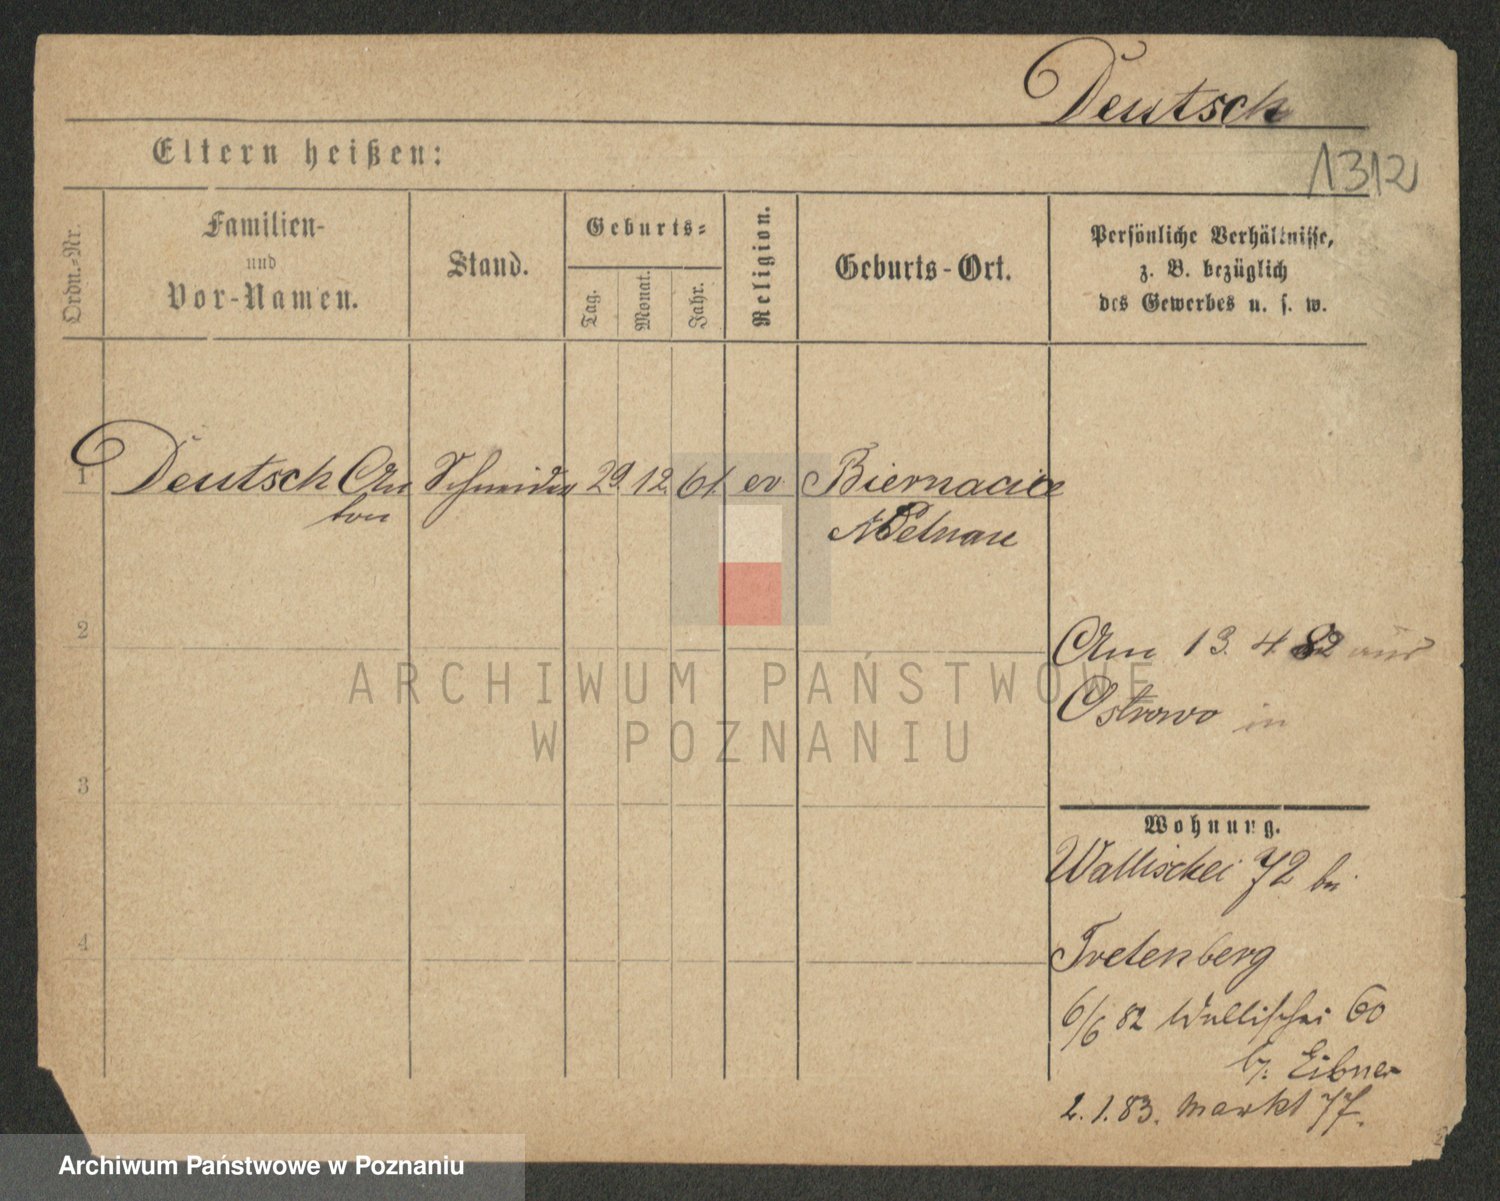 Deutsch
1312
Eltern heißen:
Ordn.-Nr.
Familien-
und
Vor-Namen.
Stand.
Geburts-
Tag.
Monat.
Jahr.
Religion.
Geburts-Ort.
Persönliche Verhältnisse,
z. B. bezüglich
des Gewerbes u. s. w.
1 Deutsch An Schneider 29. 12. 61. ev Biernacice
ton
Adelnau
2
Am 13. 4 82 aus
Ostrowo in
ARCHIWUM PAŃSTWOWE
W POZNANIU
3
Wohnung.
Wallischei 72 bei
4
Tretenberg
6/6 82 Wallischei 60
b/. Eibner
2. 1. 83. Markt 77.
Archiwum Państwowe w Poznaniu